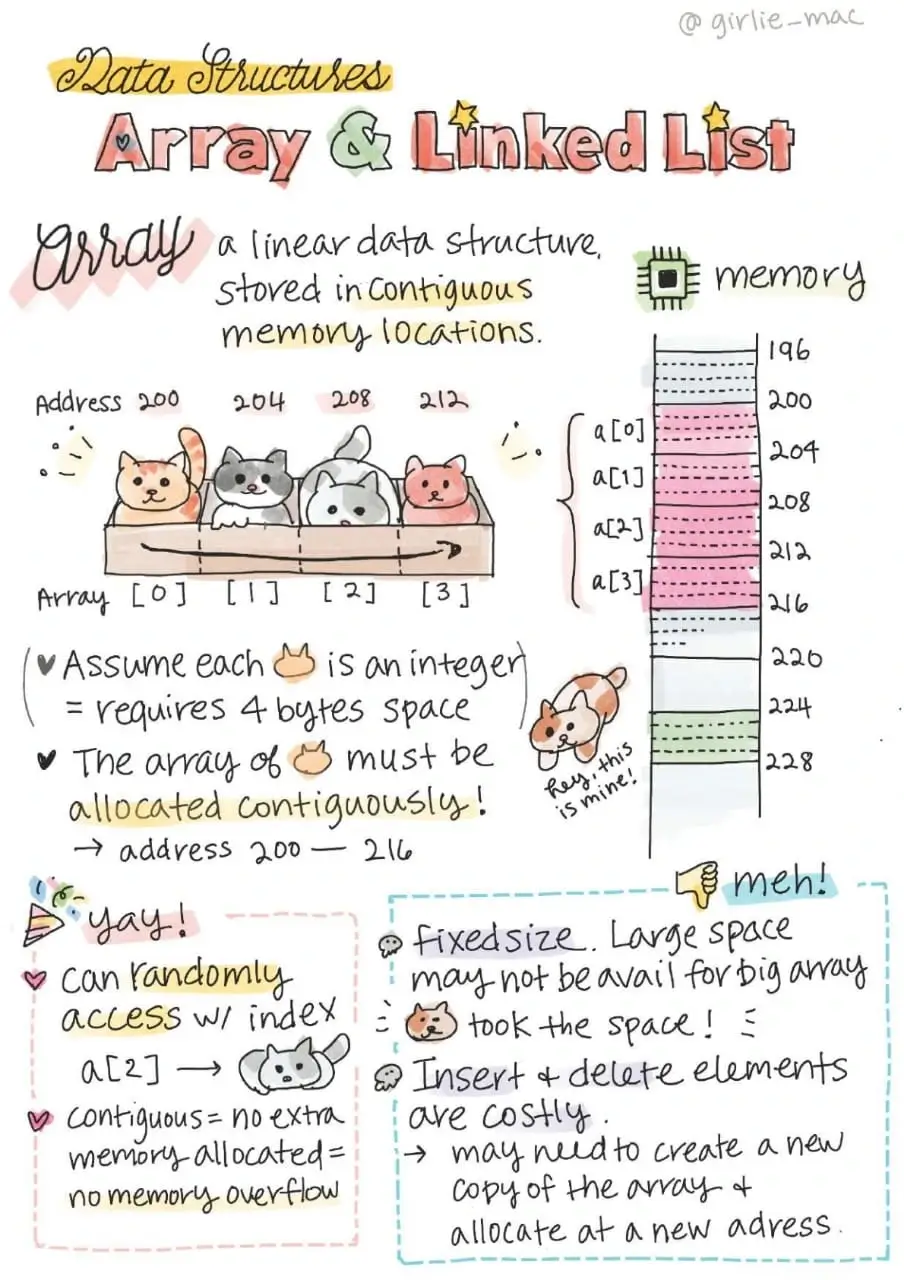 @girlie_mac
Data Structures
Array & Linked List
array
a linear data structure,
stored in contiguous
memory locations.
memory
Address 200 204 208 212
Array [0] [1] [2] [3]
196
200
a[0]
204
a[1]
208
a[2]
212
a[3]
216
220
224
228
hey, this
is mine!
(♥ Assume each is an integer
= requires 4 bytes space)
♥ The array of must be
allocated contiguously!
→ address 200 — 216
yay!
♥ can randomly
access w/ index
a[2] →
♥ contiguous = no extra
memory allocated =
no memory overflow
meh!
fixed size. Large space
may not be avail for big array
took the space!
Insert & delete elements
are costly.
→ may need to create a new
copy of the array &
allocate at a new adress.